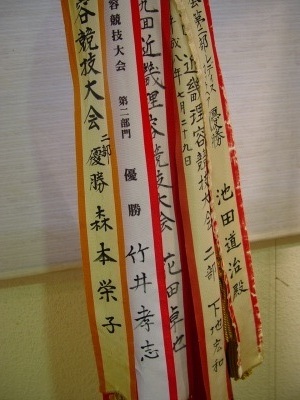 容競技大会 二部 優勝 森本栄子
容競技大会 第二部門 優勝 竹井孝志
近畿理容競技大会 花田卓也
平成八年七月二十九日
近畿理容競技大会 二部 下地宏和
優勝 池田道治殿